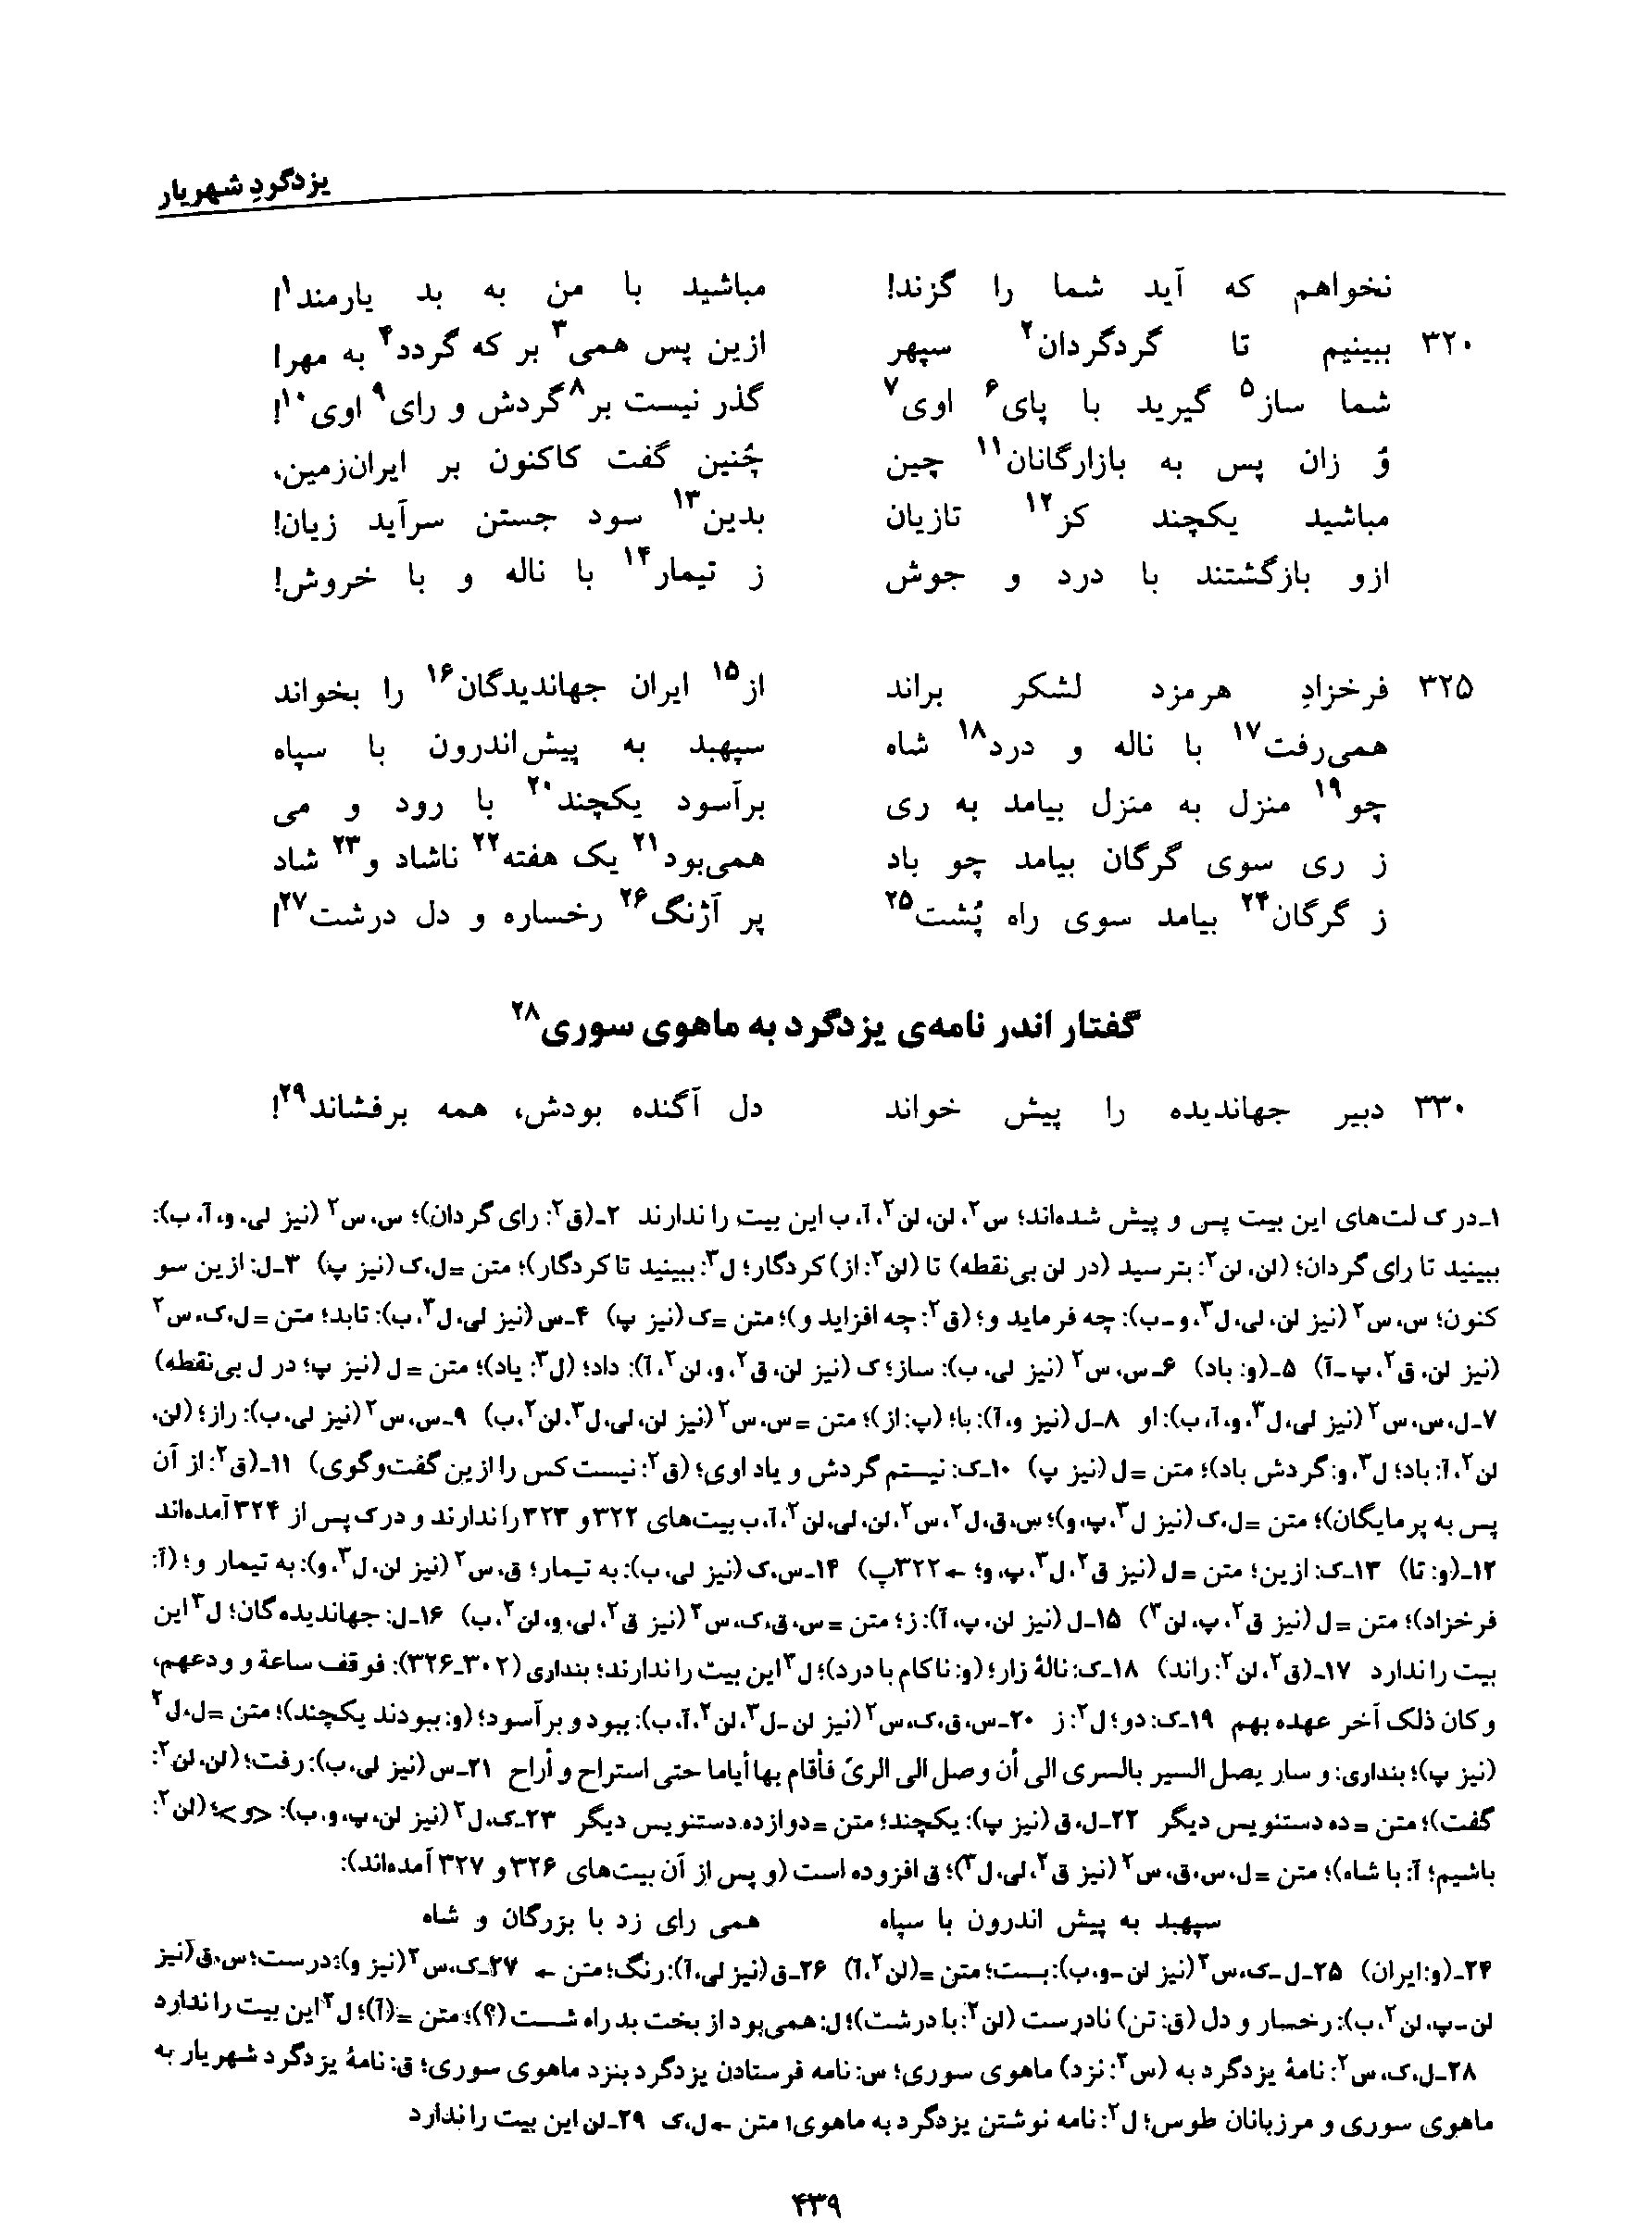 یزدگردِ شهریار
نخواهم که آید شما را گزند! مباشید با من به بد یارمند۱!
۳۲۰ ببینیم تا گردگردان۲ سپهر ازین پس همی۳ بر که گردد۴ به مهر!
شما ساز۵ گیرید با پای۶ اوی۷ گذر نیست بر۸ گردش و رای۹ اوی۱۰!
وُ زان پس به بازارگانان۱۱ چین چُنین گفت کاکنون بر ایران‌زمین،
مباشید یکچند کز۱۲ تازیان بدین۱۳ سود جستن سرآید زیان!
ازو بازگشتند با درد و جوش ز تیمار۱۴ با ناله و با خروش!
۳۲۵ فرخزادِ هرمزد لشکر براند از۱۵ ایران جهاندیدگان۱۶ را بخواند
همی‌رفت۱۷ با ناله و درد۱۸ شاه سپهبد به پیش‌اندرون با سپاه
چو۱۹ منزل به منزل بیامد به ری برآسود یکچند۲۰ با رود و می
ز ری سوی گرگان بیامد چو باد همی‌بود۲۱ یک هفته۲۲ ناشاد و۲۳ شاد
ز گرگان۲۴ بیامد سوی راه پُشت۲۵ پر آژنگ۲۶ رخساره و دل درشت۲۷!
گفتار اندر نامه‌ی یزدگرد به ماهوی سوری۲۸
۳۳۰ دبیر جهاندیده را پیش خواند دل آگنده بودش، همه برفشاند۲۹!
۱ـ در ک لت‌های این بیت پس و پیش شده‌اند؛ س۲، لن، لن۲، آ، ب این بیت را ندارند ۲ـ (ق۲: رای گردان)؛ س، س۲ (نیز لی، و، آ، ب):
ببینید تا رای گردان؛ (لن، لن۲: بترسید (در لن بی‌نقطه) تا (لن۲: از) کردگار؛ ل۳: ببینید تا کردگار)؛ متن = ل، ک (نیز پ) ۳ـ ل: ازین سو
کنون؛ س، س۲ (نیز لن، لی، ل۳، و ـ ب): چه فرماید و؛ (ق۲: چه افزاید و)؛ متن = ک (نیز پ) ۴ـ س (نیز لی، ل۳، ب): تابد؛ متن = ل، ک، س۲
(نیز لن، ق۲، پ ـ آ) ۵ـ (و: باد) ۶ـ س، س۲ (نیز لی، ب): ساز؛ ک (نیز لن، ق۲، و، لن۲، آ): داد؛ (ل۳: یاد)؛ متن = ل (نیز پ؛ در ل بی‌نقطه)
۷ـ ل، س، س۲ (نیز لی، ل۳، و، آ، ب): او ۸ـ ل (نیز و، آ): با؛ (پ: از)؛ متن = س، س۲ (نیز لن، لی، ل۳، لن۲، ب) ۹ـ س، س۲ (نیز لی، ب): راز؛ (لن،
لن۲، آ: باد؛ ل۳، و: گردش باد)؛ متن = ل (نیز پ) ۱۰ـ ک: نیستم گردش و یاد اوی؛ (ق۲: نیست کس را ازین گفت‌وگوی) ۱۱ـ (ق۲: از آن
پس به پرمایگان)؛ متن = ل، ک (نیز ل۳، پ، و)؛ س، ق، ل۲، س۲، لن، لی، لن۲، آ، ب بیت‌های ۳۲۲ و ۳۲۳ را ندارند و در ک پس از ۳۲۴ آمده‌اند
۱۲ـ (و: تا) ۱۳ـ ک: ازین؛ متن = ل (نیز ق۲، ل۳، پ، و؛ ← ۳۲۲پ) ۱۴ـ س، ک (نیز لی، ب): به تیمار؛ ق، س۲ (نیز لن، ل۳، و): به تیمار و؛ (آ:
فرخزاد)؛ متن = ل (نیز ق۲، پ، لن۲) ۱۵ـ ل (نیز لن، پ، آ): ز؛ متن = س، ق، ک، س۲ (نیز ق۲، لی، و، لن۲، ب) ۱۶ـ ل: جهاندیده‌گان؛ ل۳ این
بیت را ندارد ۱۷ـ (ق۲، لن۲: راند) ۱۸ـ ک: نالهٔ زار؛ (و: ناکام با درد)؛ ل۳ این بیت را ندارند؛ بنداری (۳۰۲ـ۳۲۶): فوقف ساعة و ودعهم،
و کان ذلک آخر عهده بهم ۱۹ـ ک: دو؛ ل۲: ز ۲۰ـ س، ق، ک، س۲ (نیز لن ـ ل۳، لن۲، آ، ب): ببود و برآسود؛ (و: ببودند یکچند)؛ متن = ل، ل۲
(نیز پ)؛ بنداری: و سار یصل السیر بالسری الی أن وصل الی الریّ فأقام بها أیاما حتی استراح و أراح ۲۱ـ س (نیز لی، ب): رفت؛ (لن، لن۲:
گفت)؛ متن = ده دستنویس دیگر ۲۲ـ ل، ق (نیز پ): یکچند؛ متن = دوازده دستنویس دیگر ۲۳ـ ک، ل۲ (نیز لن، پ، و، ب): <و>؛ (لن۲:
باشیم؛ آ: با شاه)؛ متن = ل، س، ق، س۲ (نیز ق۲، لی، ل۳)؛ ق افزوده است (و پس از آن بیت‌های ۳۲۶ و ۳۲۷ آمده‌اند):
سپهبد به پیش اندرون با سپاه همی رای زد با بزرگان و شاه
۲۴ـ (و: ایران) ۲۵ـ ل ـ ک، س۲ (نیز لن ـ و، ب): بست؛ متن = (لن۲، آ) ۲۶ـ ق (نیز لی، آ): رنگ؛ متن ← ۲۷ـ ک، س۲ (نیز و): درست؛ س، ق (نیز
لن ـ پ، لن۲، ب): رخسار و دل (ق: تن) نادرست (لن۲: با درشت)؛ ل: همی‌بود از بخت بد راه شست (؟)؛ متن = (آ)؛ ل۳ این بیت را ندارد
۲۸ـ ل، ک، س۲: نامهٔ یزدگرد به (س۲: نزد) ماهوی سوری؛ س: نامه فرستادن یزدگرد بنزد ماهوی سوری؛ ق: نامهٔ یزدگرد شهریار به
ماهوی سوری و مرزبانان طوس؛ ل۲: نامه نوشتن یزدگرد به ماهوی؛ متن ← ل، ک ۲۹ـ لن این بیت را ندارد
۴۳۹